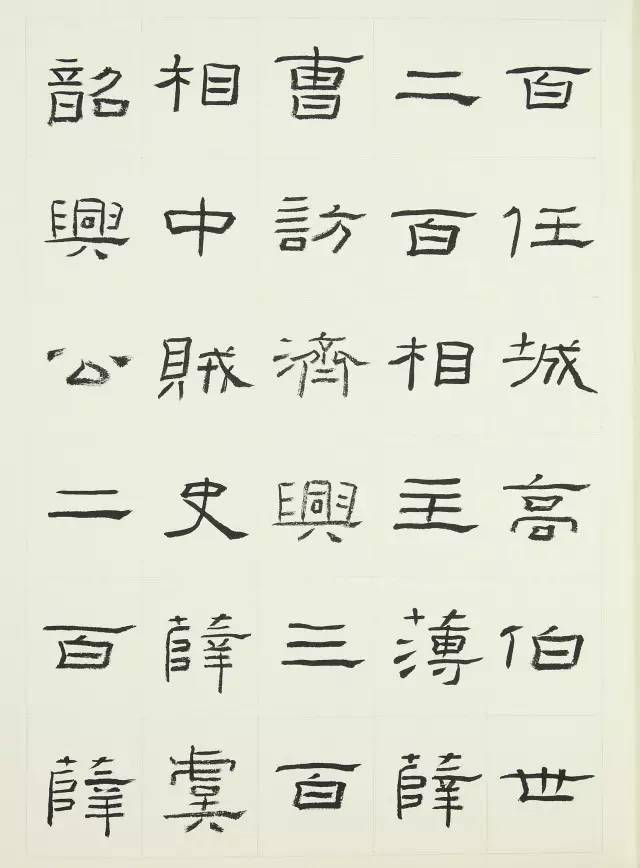 百任城高伯世
二百相主薄薛
曹訪濟興三百
相中賊史薛虞
韶興公二百薛